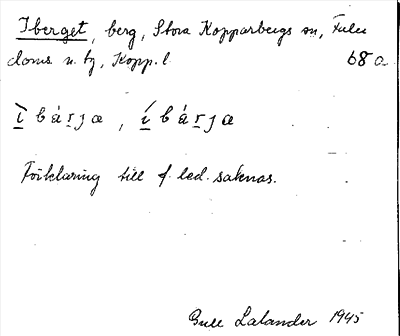 Iberget, berg, Stora Kopparbergs sn, Falu
doms u. tg, Kopp. l. 68 a
ì b á r j æ, í b á r j æ
Förklaring till f. led. saknas.
Lalander 1945